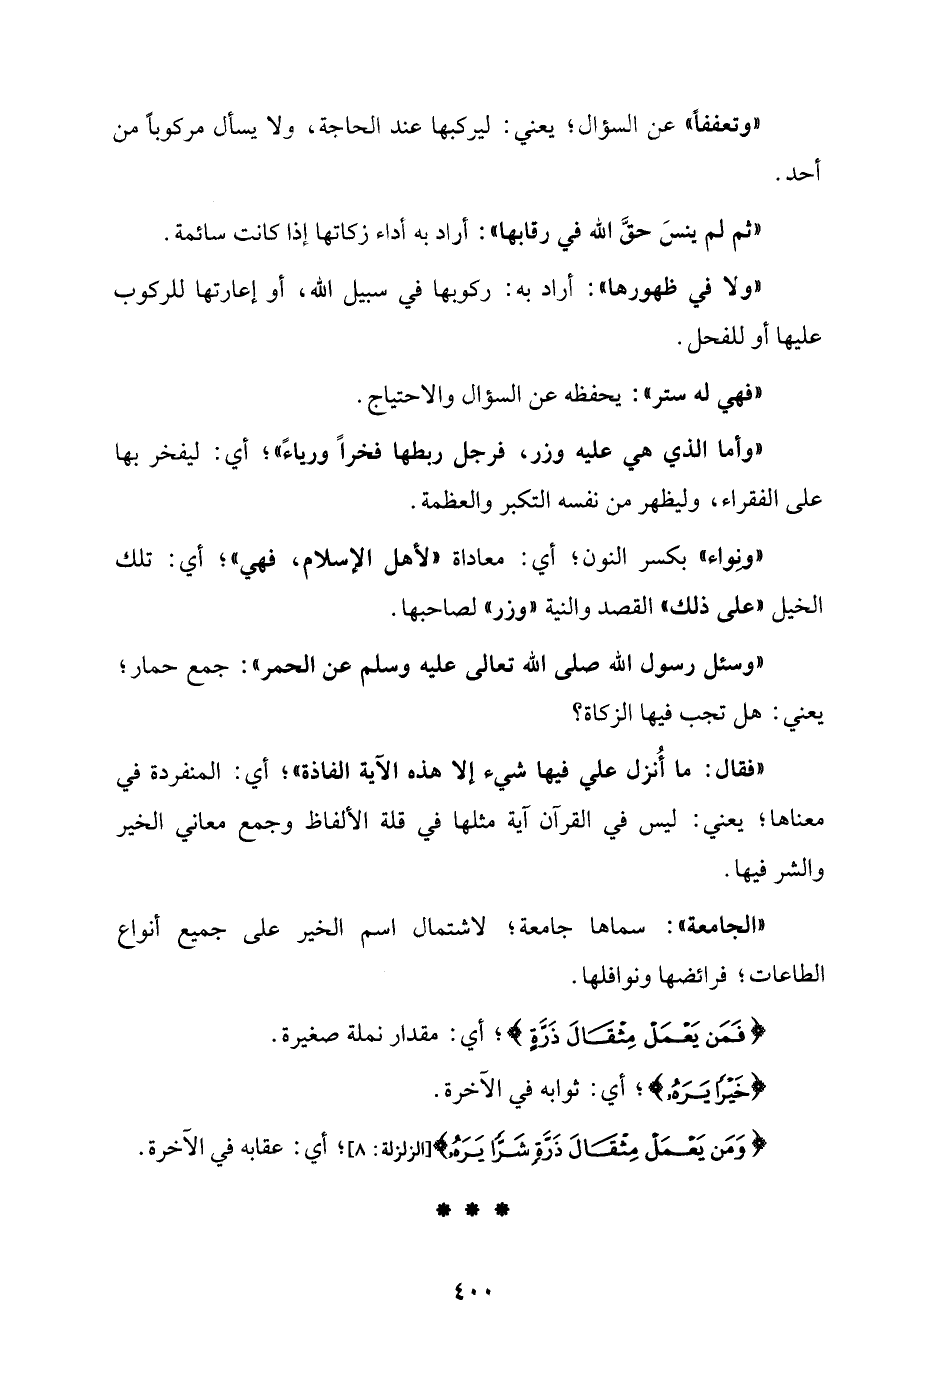 «وتعففاً» عن السؤال؛ يعني: ليركبها عند الحاجة، ولا يسأل مركوباً من
أحد.
«ثم لم ينسَ حقَّ الله في رقابها»: أراد به أداء زكاتها إذا كانت سائمة.
«ولا في ظهورها»: أراد به: ركوبها في سبيل الله، أو إعارتها للركوب
عليها أو للفحل.
«فهي له ستر»: يحفظه عن السؤال والاحتياج.
«وأما الذي هي عليه وزر، فرجل ربطها فخراً ورياءً»؛ أي: ليفخر بها
على الفقراء، وليظهر من نفسه التكبر والعظمة.
«ونِواء» بكسر النون؛ أي: معاداة «لأهل الإسلام، فهي»؛ أي: تلك
الخيل «على ذلك» القصد والنية «وزر» لصاحبها.
«وسئل رسول الله صلى الله تعالى عليه وسلم عن الحمر»: جمع حمار؛
يعني: هل تجب فيها الزكاة؟
«فقال: ما أُنزل علي فيها شيء إلا هذه الآية الفاذة»؛ أي: المنفردة في
معناها؛ يعني: ليس في القرآن آية مثلها في قلة الألفاظ وجمع معاني الخير
والشر فيها.
«الجامعة»: سماها جامعة؛ لاشتمال اسم الخير على جميع أنواع
الطاعات؛ فرائضها ونوافلها.
﴿فَمَن يَعْمَلْ مِثْقَالَ ذَرَّةٍ﴾؛ أي: مقدار نملة صغيرة.
﴿خَيْرًا يَرَهُۥ﴾؛ أي: ثوابه في الآخرة.
﴿وَمَن يَعْمَلْ مِثْقَالَ ذَرَّةٍ شَرًّا يَرَهُۥ﴾[الزلزلة: ٨]؛ أي: عقابه في الآخرة.
* * *
٤٠٠